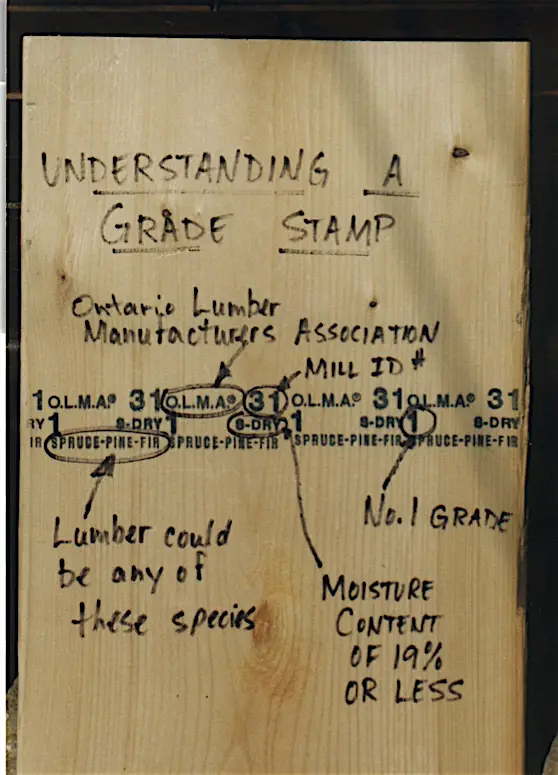 UNDERSTANDING A
GRADE STAMP
Ontario Lumber
Manufacturers ASSOCIATION
MILL ID #
1 O.L.M.A.® 31 O.L.M.A.® 31 O.L.M.A.® 31 O.L.M.A.® 31
RY 1 S-DRY 1 S-DRY 1 S-DRY 1 S-DRY
IR SPRUCE-PINE-FIR SPRUCE-PINE-FIR SPRUCE-PINE-FIR SPRUCE-PINE-FIR
No. 1 GRADE
Lumber could
be any of
these species
MOISTURE
CONTENT
OF 19%
OR LESS